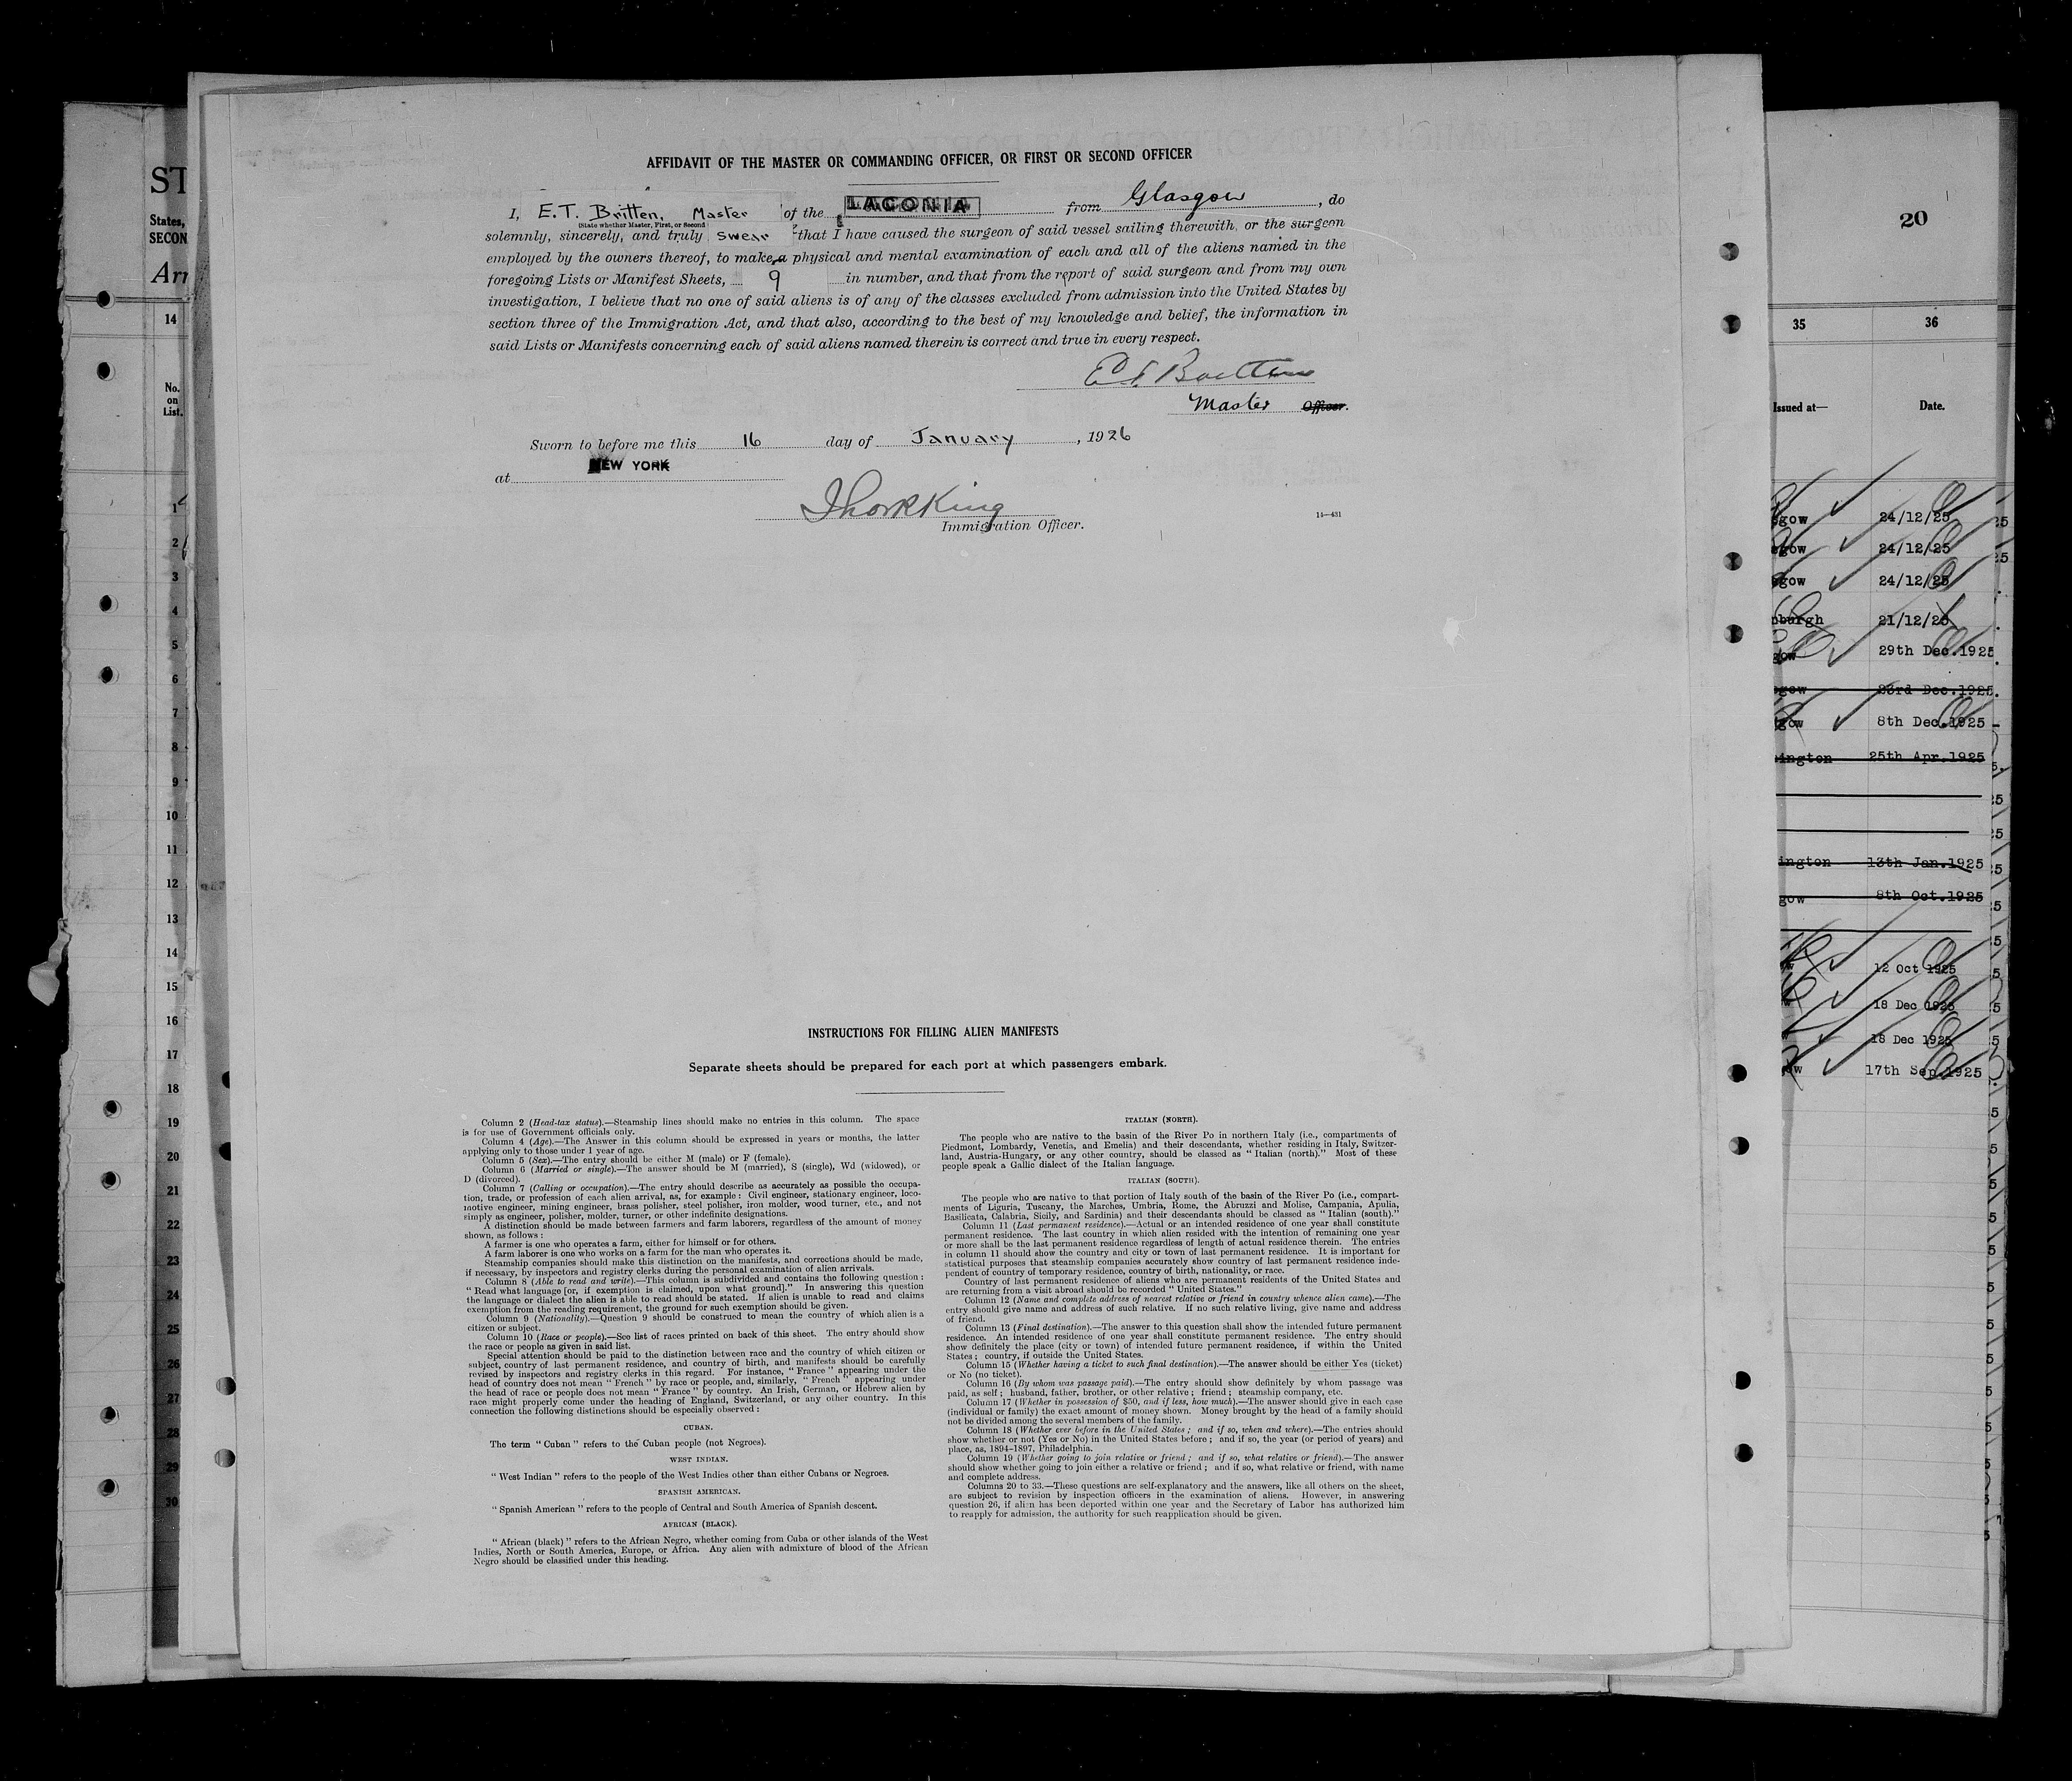 AFFIDAVIT OF THE MASTER OR COMMANDING OFFICER, OR FIRST OR SECOND OFFICER
I, E.T. Britten, Master of the LACONIA from Glasgow, do
(State whether Master, First, or Second
solemnly, sincerely, and truly swear that I have caused the surgeon of said vessel sailing therewith, or the surgeon
employed by the owners thereof, to make a physical and mental examination of each and all of the aliens named in the
foregoing Lists or Manifest Sheets, 9 in number, and that from the report of said surgeon and from my own
investigation, I believe that no one of said aliens is of any of the classes excluded from admission into the United States by
section three of the Immigration Act, and that also, according to the best of my knowledge and belief, the information in
said Lists or Manifests concerning each of said aliens named therein is correct and true in every respect.
Master Officer.
Sworn to before me this 16 day of January, 1926
at NEW YORK
Immigration Officer.
14—431
INSTRUCTIONS FOR FILLING ALIEN MANIFESTS
Separate sheets should be prepared for each port at which passengers embark.
Column 2 (Head-tax status).—Steamship lines should make no entries in this column. The space
is for use of Government officials only.
Column 4 (Age).—The Answer in this column should be expressed in years or months, the latter
applying only to those under 1 year of age.
Column 5 (Sex).—The entry should be either M (male) or F (female).
Column 6 (Married or single).—The answer should be M (married), S (single), Wd (widowed), or
D (divorced).
Column 7 (Calling or occupation).—The entry should describe as accurately as possible the occupa-
tion, trade, or profession of each alien arrival, as, for example: Civil engineer, stationary engineer, loco-
motive engineer, mining engineer, brass polisher, steel polisher, iron molder, wood turner, etc., and not
simply as engineer, polisher, molder, turner, or other indefinite designations.
A distinction should be made between farmers and farm laborers, regardless of the amount of money
shown, as follows:
A farmer is one who operates a farm, either for himself or for others.
A farm laborer is one who works on a farm for the man who operates it.
Steamship companies should make this distinction on the manifests, and corrections should be made,
if necessary, by inspectors and registry clerks during the personal examination of alien arrivals.
Column 8 (Able to read and write).—This column is subdivided and contains the following question:
“ Read what language [or, if exemption is claimed, upon what ground].” In answering this question
the language or dialect the alien is able to read should be stated. If alien is unable to read and claims
exemption from the reading requirement, the ground for such exemption should be given.
Column 9 (Nationality).—Question 9 should be construed to mean the country of which alien is a
citizen or subject.
Column 10 (Race or people).—See list of races printed on back of this sheet. The entry should show
the race or people as given in said list.
Special attention should be paid to the distinction between race and the country of which citizen or
subject, country of last permanent residence, and country of birth, and manifests should be carefully
revised by inspectors and registry clerks in this regard. For instance, “ France ” appearing under the
head of country does not mean “ French ” by race or people, and, similarly, “ French ” appearing under
the head of race or people does not mean “ France ” by country. An Irish, German, or Hebrew alien by
race might properly come under the heading of England, Switzerland, or any other country. In this
connection the following distinctions should be especially observed:
CUBAN.
The term “ Cuban ” refers to the Cuban people (not Negroes).
WEST INDIAN.
“ West Indian ” refers to the people of the West Indies other than either Cubans or Negroes.
SPANISH AMERICAN.
“ Spanish American ” refers to the people of Central and South America of Spanish descent.
AFRICAN (BLACK).
“ African (black) ” refers to the African Negro, whether coming from Cuba or other islands of the West
Indies, North or South America, Europe, or Africa. Any alien with admixture of blood of the African
Negro should be classified under this heading.
ITALIAN (NORTH).
The people who are native to the basin of the River Po in northern Italy (i.e., compartments of
Piedmont, Lombardy, Venetia, and Emelia) and their descendants, whether residing in Italy, Switzer-
land, Austria-Hungary, or any other country, should be classed as “ Italian (north).” Most of these
people speak a Gallic dialect of the Italian language.
ITALIAN (SOUTH).
The people who are native to that portion of Italy south of the basin of the River Po (i.e., compart-
ments of Liguria, Tuscany, the Marches, Umbria, Rome, the Abruzzi and Molise, Campania, Apulia,
Basilicata, Calabria, Sicily, and Sardinia) and their descendants should be classed as “ Italian (south).”
Column 11 (Last permanent residence).—Actual or an intended residence of one year shall constitute
permanent residence. The last country in which alien resided with the intention of remaining one year
or more shall be the last permanent residence regardless of length of actual residence therein. The entries
in column 11 should show the country and city or town of last permanent residence. It is important for
statistical purposes that steamship companies accurately show country of last permanent residence inde-
pendent of country of temporary residence, country of birth, nationality, or race.
Country of last permanent residence of aliens who are permanent residents of the United States and
are returning from a visit abroad should be recorded “ United States.”
Column 12 (Name and complete address of nearest relative or friend in country whence alien came).—The
entry should give name and address of such relative. If no such relative living, give name and address
of friend.
Column 13 (Final destination).—The answer to this question shall show the intended future permanent
residence. An intended residence of one year shall constitute permanent residence. The entry should
show definitely the place (city or town) of intended future permanent residence, if within the United
States; country, if outside the United States.
Column 15 (Whether having a ticket to such final destination).—The answer should be either Yes (ticket)
or No (no ticket).
Column 16 (By whom was passage paid).—The entry should show definitely by whom passage was
paid, as self; husband, father, brother, or other relative; friend; steamship company, etc.
Column 17 (Whether in possession of $50, and if less, how much).—The answer should give in each case
(individual or family) the exact amount of money shown. Money brought by the head of a family should
not be divided among the several members of the family.
Column 18 (Whether ever before in the United States; and if so, when and where).—The entries should
show whether or not (Yes or No) in the United States before; and if so, the year (or period of years) and
place, as, 1894-1897, Philadelphia.
Column 19 (Whether going to join relative or friend; and if so, what relative or friend).—The answer
should show whether going to join either a relative or friend; and if so, what relative or friend, with name
and complete address.
Columns 20 to 33.—These questions are self-explanatory and the answers, like all others on the sheet,
are subject to revision by inspection officers in the examination of aliens. However, in answering
question 26, if alien has been deported within one year and the Secretary of Labor has authorized him
to reapply for admission, the authority for such reapplication should be given.
ST
States,
SECON
Arr
14
No.
on
List.
1
2
3
4
5
6
7
8
9
10
11
12
13
14
15
16
17
18
19
20
21
22
23
24
25
26
27
28
29
30
20
35 36
Issued at— Date.
gow 24/12/25
gow 24/12/25
gow 24/12/25
nburgh 21/12/25
gow 29th Dec.1925
gow 23rd Dec.1925
gow 8th Dec.1925
ington 25th Apr.1925
ington 13th Jan.1925
gow 8th Oct.1925
w 12 Oct 1925
w 18 Dec 1925
w 18 Dec 1925
ow 17th Sep.1925